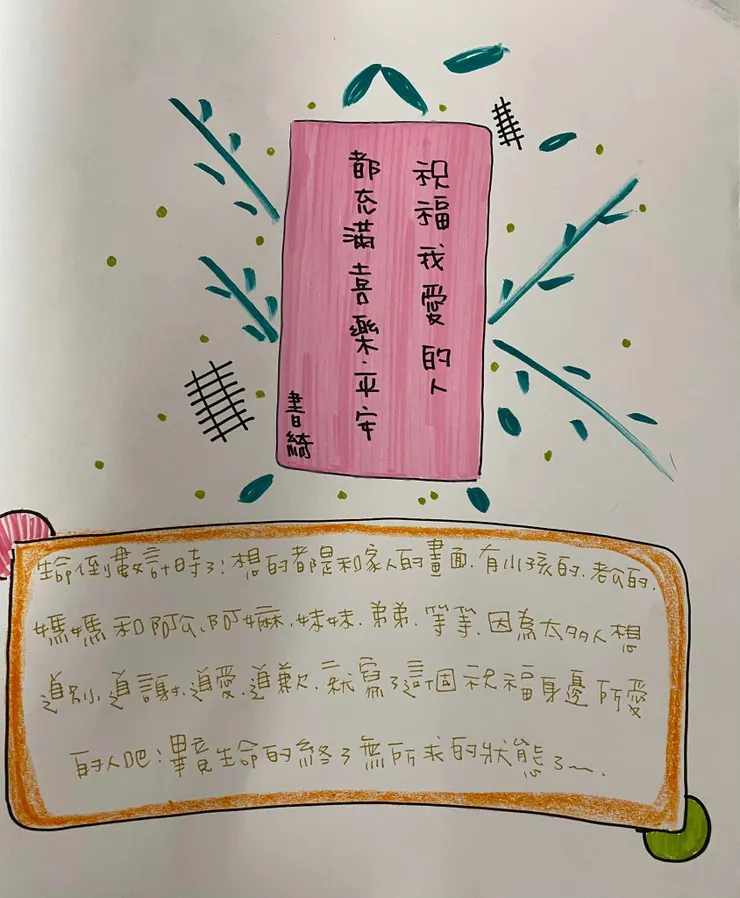 祝福我愛的人
都充滿喜樂.平安
書綺
生命倒數計時了!想的都是和家人的畫面.有小孩的.老公的.
媽媽和阿公、阿嬤.妹妹.弟弟.等等.因為太多人想
道別、道謝、道愛.道歉.就寫了這個祝福身邊所愛
的人吧!畢竟生命的終了無所求的狀態了~.